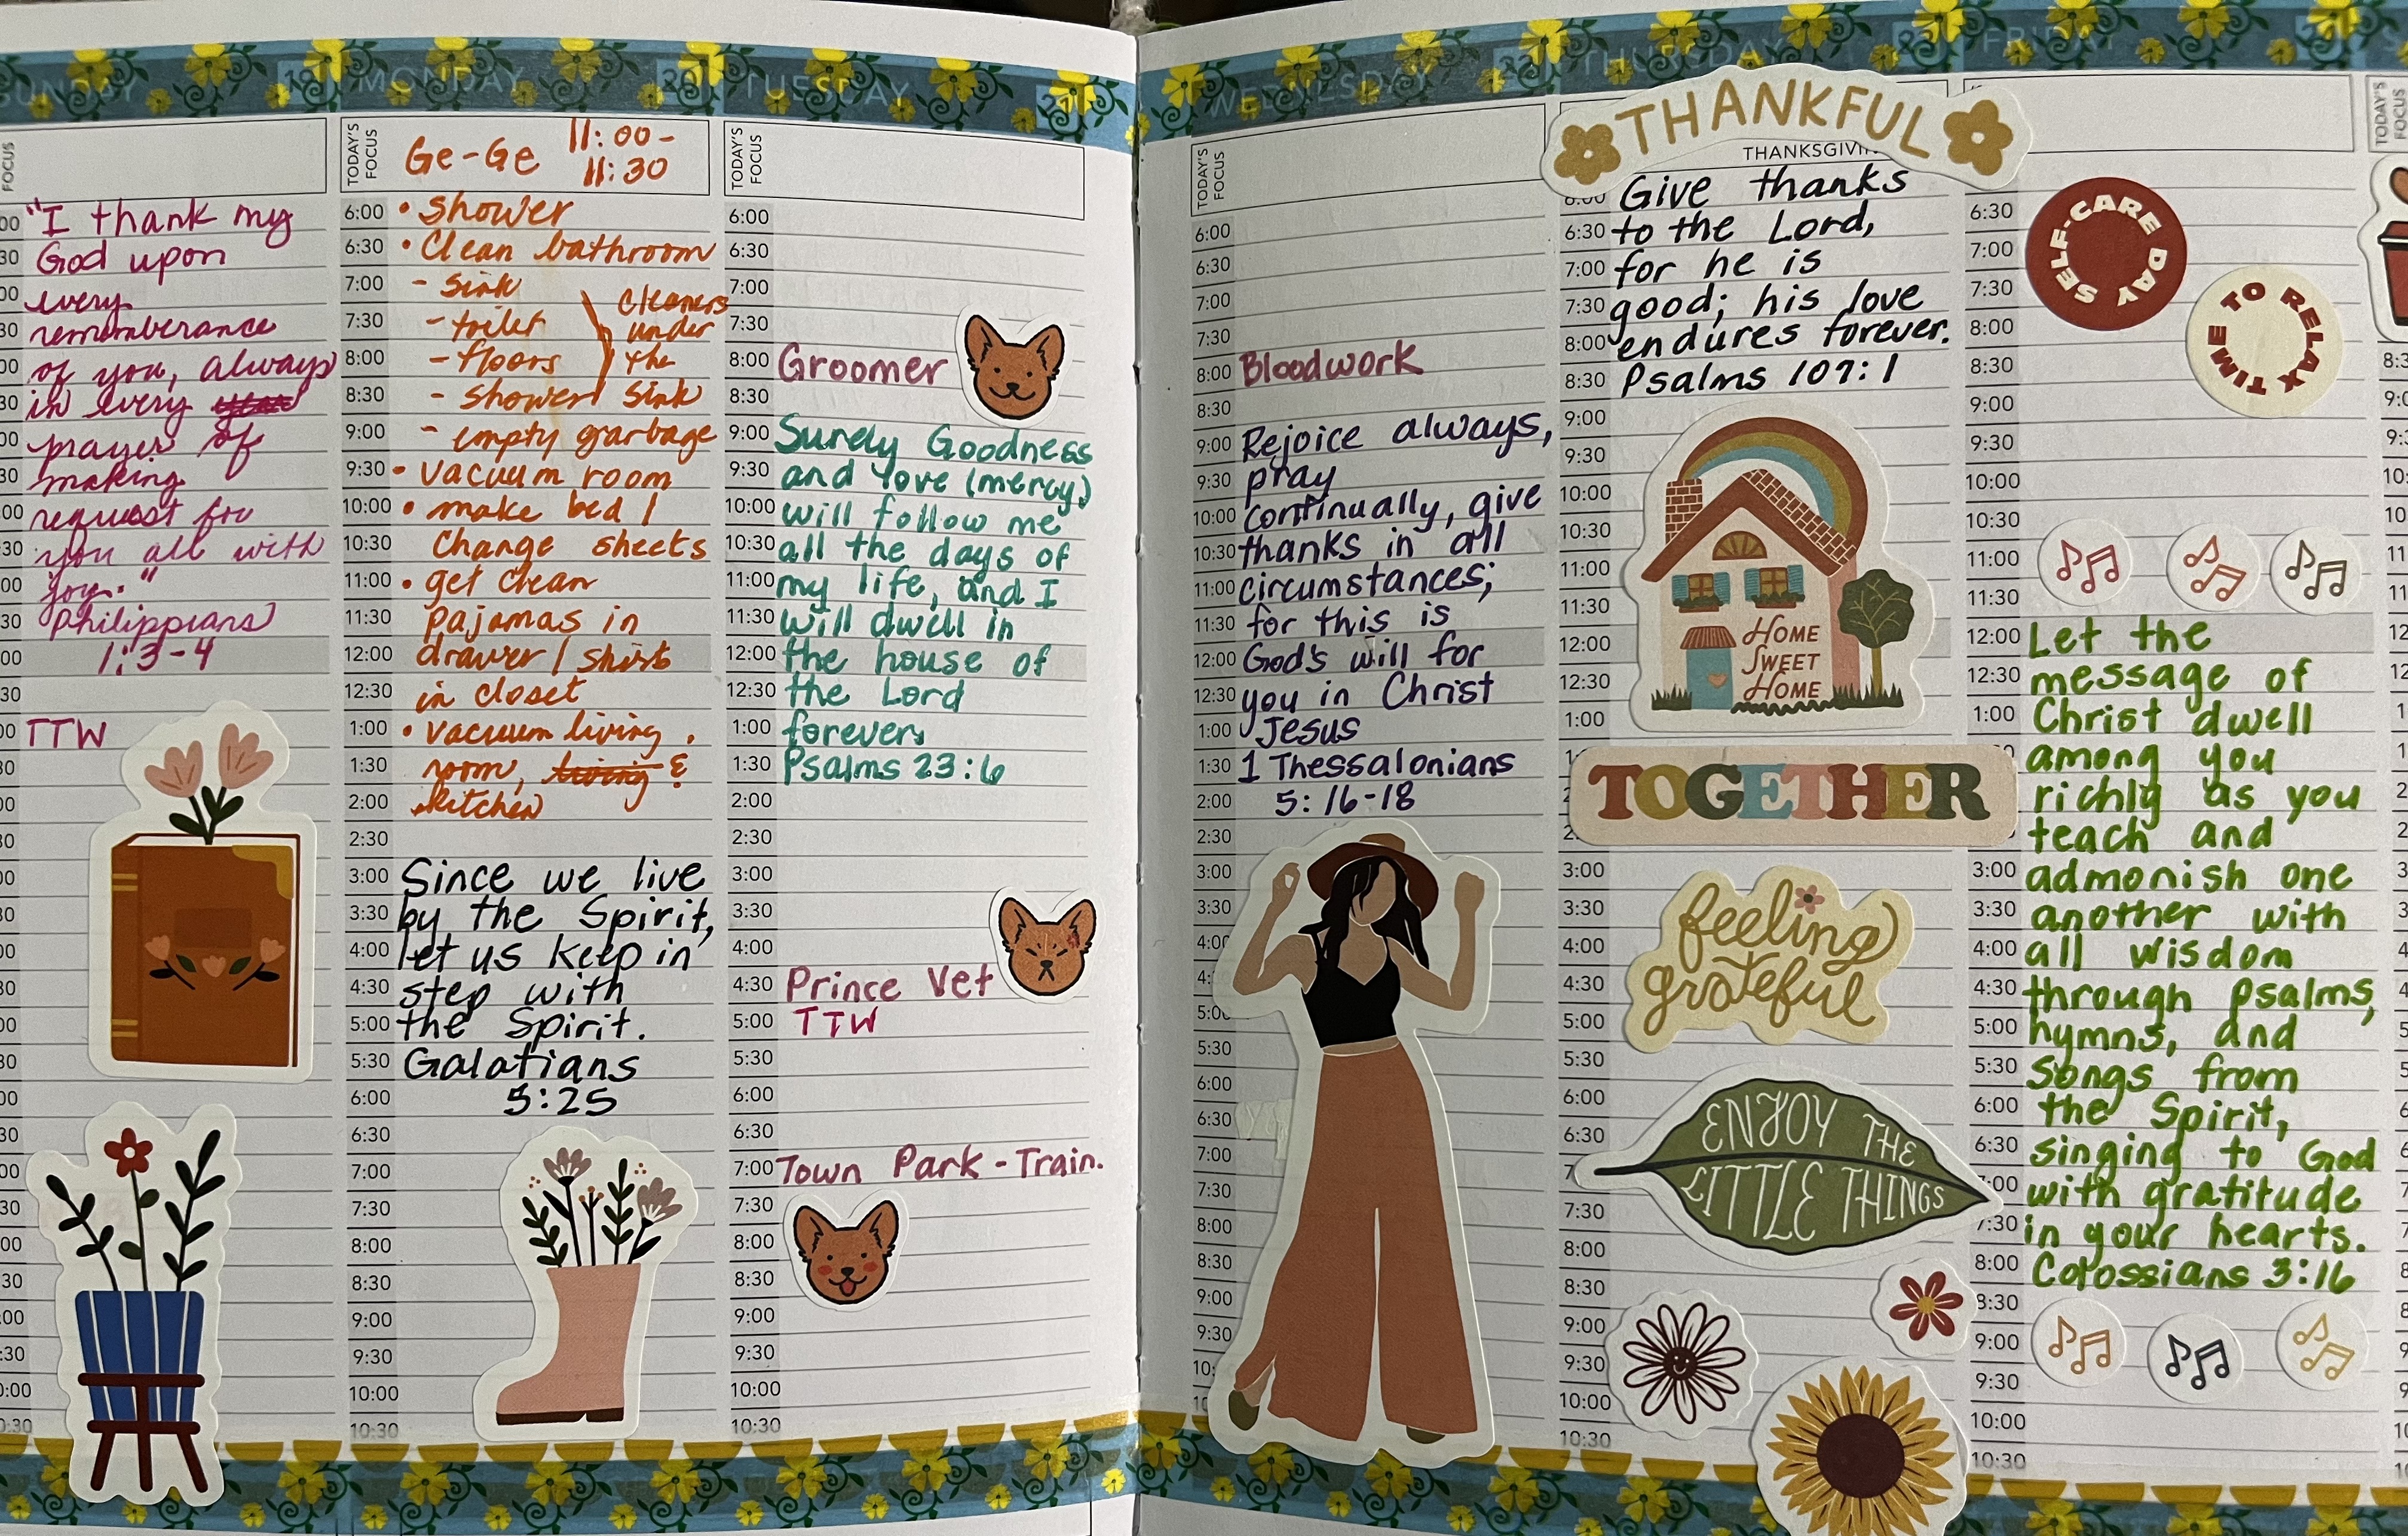 SUNDAY 19
FOCUS
"I thank my
God upon
every
rememberance
of you, always
in every
prayer of
making
request for
you all with
joy."
Philippians
1:3-4
TTW
MONDAY 20
TODAY'S FOCUS
Ge-Ge 11:00-
11:30
6:00 • shower
6:30 • Clean bathroom
7:00 - sink
7:30 - toilet
8:00 - floors
8:30 - shower
cleaners
under
the
sink
9:00 - empty garbage
9:30 • vacuum room
10:00 • make bed /
10:30 Change sheets
11:00 • get clean
11:30 pajamas in
12:00 drawer / shirts
12:30 in closet
1:00 • vacuum living
1:30 room, living &
2:00 kitchen
2:30
3:00 Since we live
3:30 by the Spirit,
4:00 let us keep in
4:30 step with
5:00 the Spirit.
5:30 Galatians
6:00 5:25
6:30
7:00
7:30
8:00
8:30
9:00
9:30
10:00
10:30
TUESDAY 21
TODAY'S FOCUS
6:00
6:30
7:00
7:30
8:00 Groomer
8:30
9:00 Surely Goodness
9:30 and love (mercy)
10:00 will follow me
10:30 all the days of
11:00 my life, and I
11:30 will dwell in
12:00 the house of
12:30 the Lord
1:00 forever.
1:30 Psalms 23:6
2:00
2:30
3:00
3:30
4:00
4:30 Prince Vet
5:00 TTW
5:30
6:00
6:30
7:00 Town Park - Train.
7:30
8:00
8:30
9:00
9:30
10:00
10:30
WEDNESDAY 22
TODAY'S FOCUS
6:00
6:30
7:00
7:30
8:00 Bloodwork
8:30
9:00 Rejoice always,
9:30 pray
10:00 continually, give
10:30 thanks in all
11:00 circumstances;
11:30 for this is
12:00 God's will for
12:30 you in Christ
1:00 Jesus
1:30 1 Thessalonians
2:00 5:16-18
2:30
3:00
3:30
4:00
5:30
6:00
6:30
7:00
7:30
8:00
8:30
9:00
9:30
THURSDAY 23
THANKFUL
6:00 Give thanks
6:30 to the Lord,
7:00 for he is
7:30 good; his love
8:00 endures forever.
8:30 Psalms 107:1
9:00
9:30
10:00
10:30
11:00
11:30
12:00
12:30
1:00
HOME
SWEET
HOME
TOGETHER
3:00
3:30
4:00
4:30
5:00
feeling
grateful
5:30
6:00
6:30
ENJOY THE
LITTLE THINGS
7:30
8:00
8:30
9:00
9:30
10:00
10:30
FRIDAY
6:30
7:00
7:30
8:00
8:30
SELF-CARE DAY
TIME TO RELAX
9:00
9:30
10:00
10:30
11:00
11:30
12:00 Let the
12:30 message of
1:00 Christ dwell
among you
richly as you
teach and
3:00 admonish one
3:30 another with
4:00 all wisdom
4:30 through psalms,
5:00 hymns, and
5:30 songs from
6:00 the Spirit,
6:30 singing to God
7:00 with gratitude
7:30 in your hearts.
8:00 Colossians 3:16
8:30
9:00
9:30
10:00
10:30
TODAY'S FOCUS